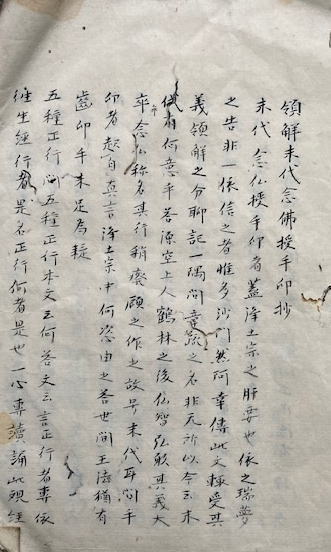 領解末代念佛授手印抄
末代念仏授手印者蓋浄土宗之肝要也依之瑞夢
之告非一依信之者惟多沙門然阿幸傳此文輙受其
義領解之分聊記一隅問章䟽之名非无所以今云末
代有何意乎答源空上人鶴林之後仏智弘願其義大
卒念仏称名其行稍廃顧之作之故号末代耳問手
印者起自真言浄土宗中何恣由之答世間王法猶有
印手未足為疑
五種正行問五種正行本文云何答文云言正行者專依
往生經行行者是名正行何者是也一心專讀誦此觀經